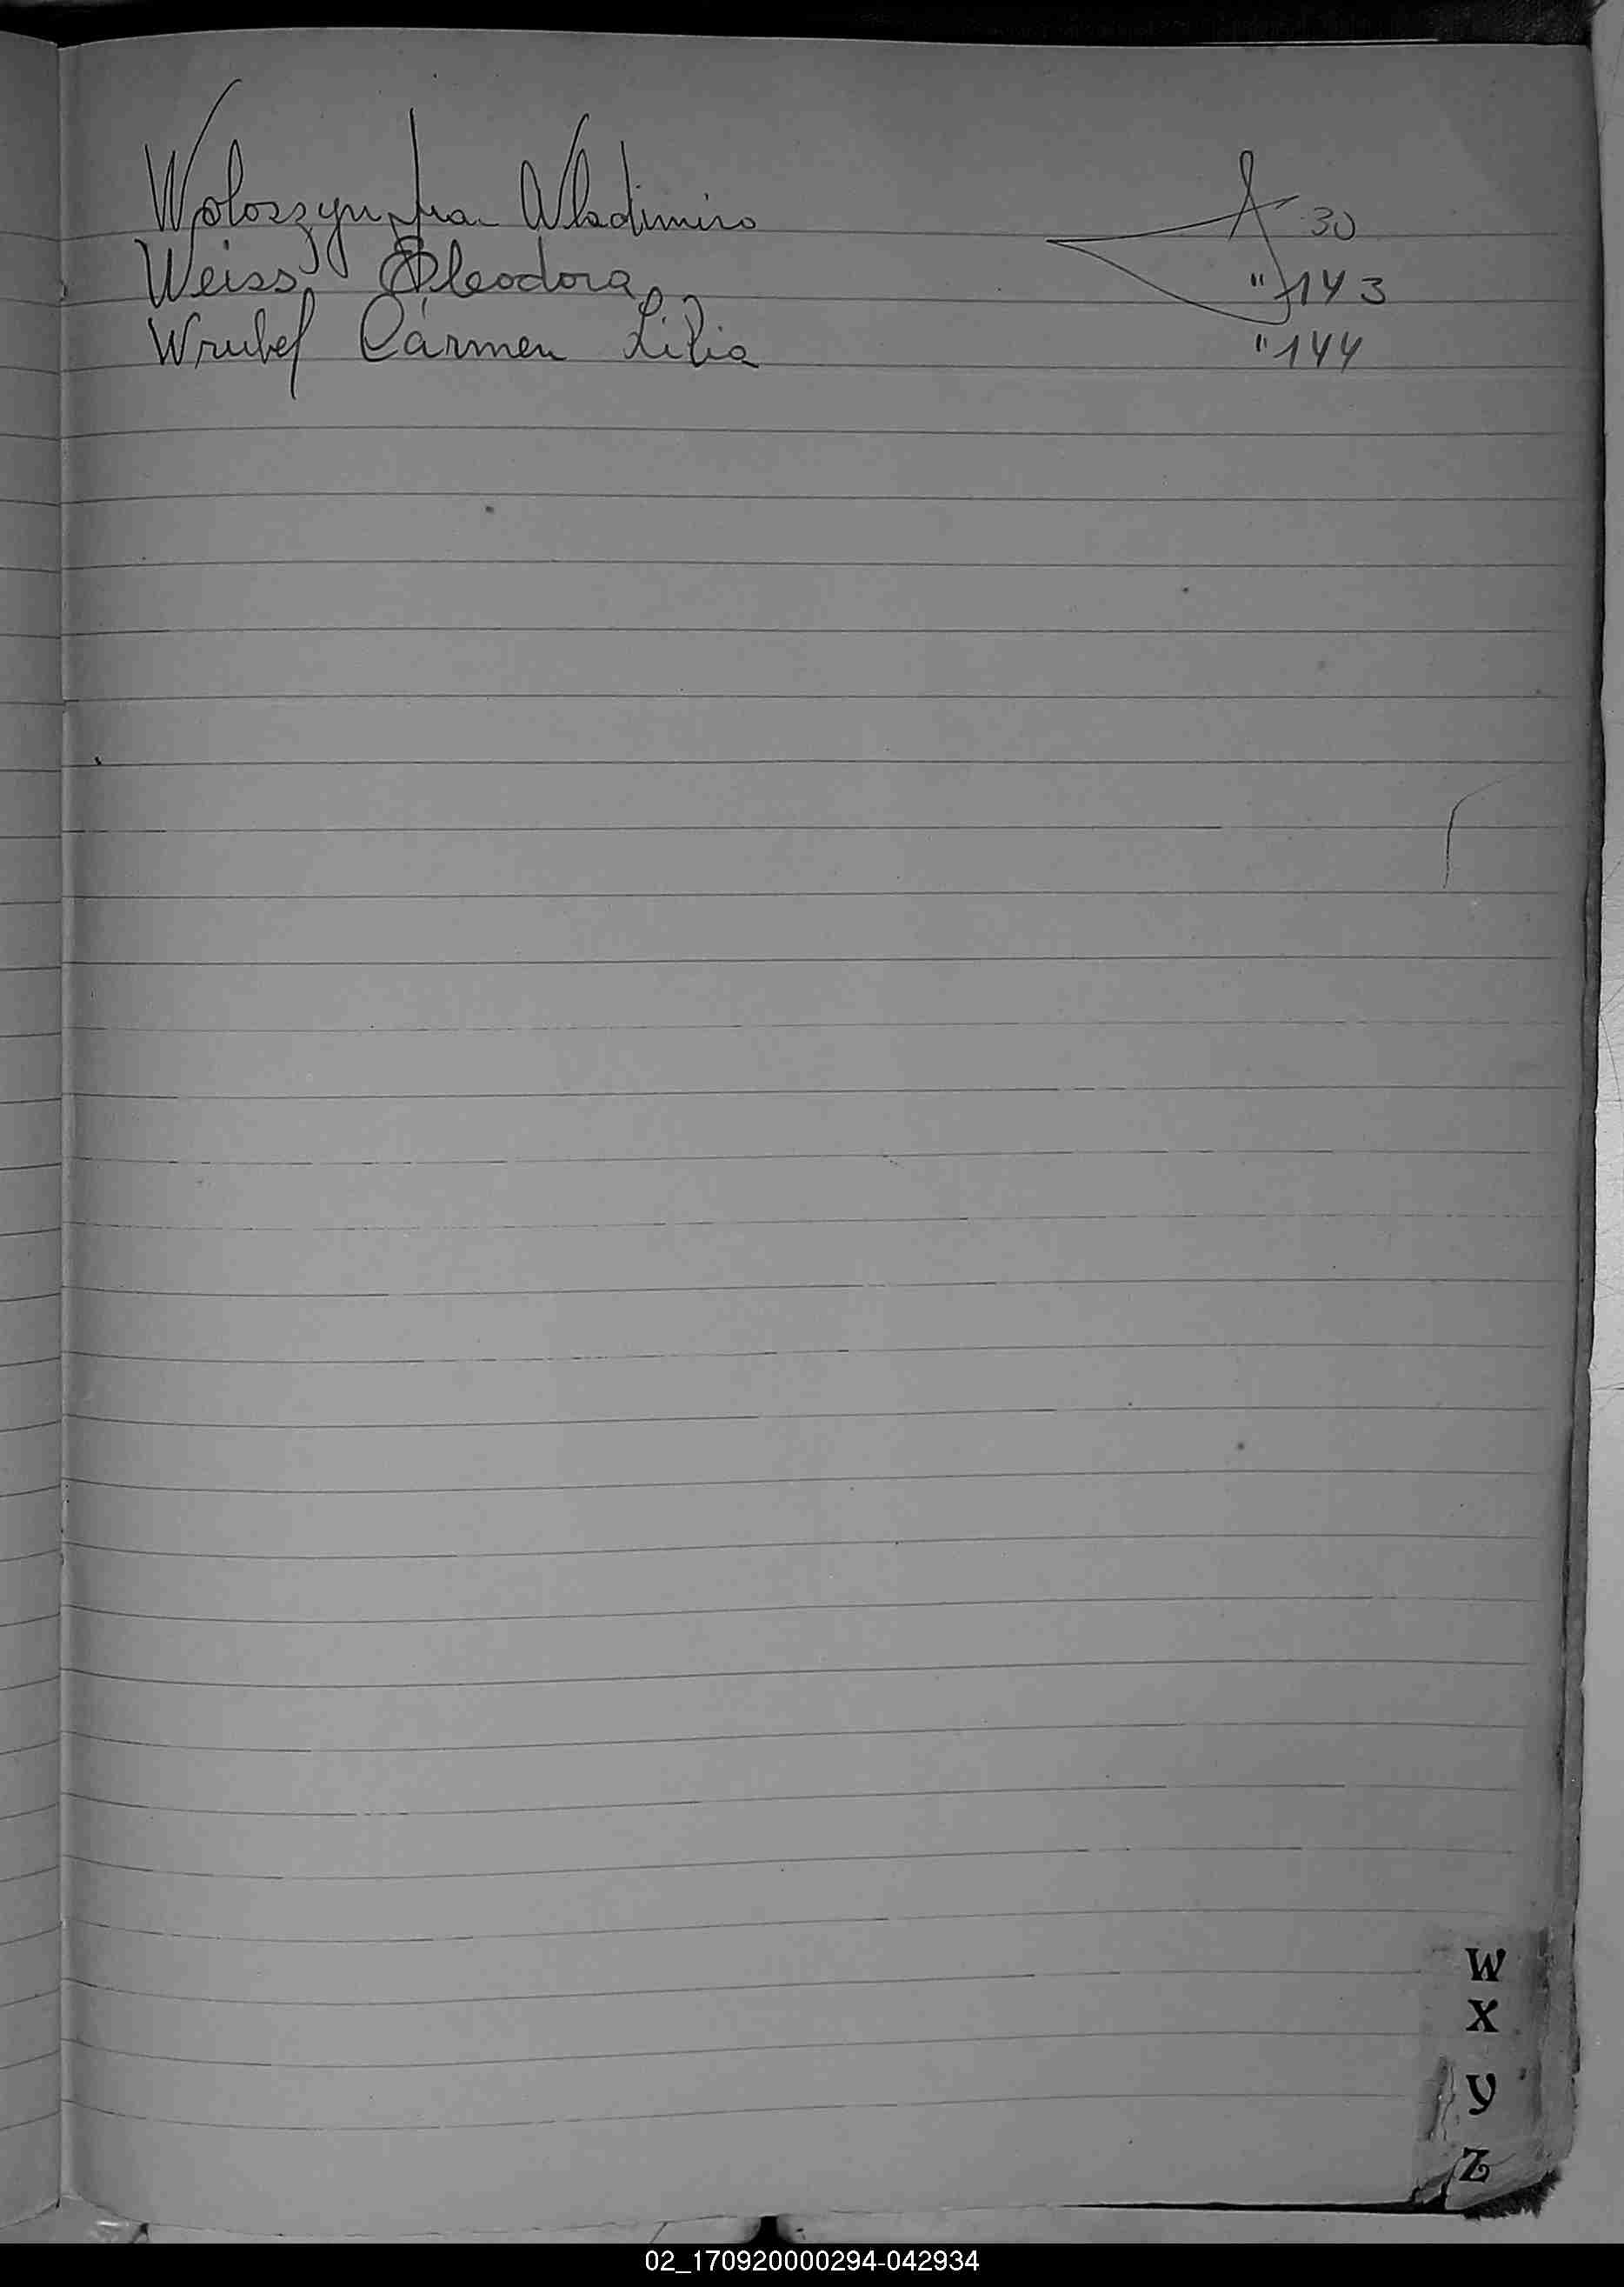 Woloszyn Jua Wladimiro 30
Weiss Eleodora " 143
Wrubel Cármen Lilia " 144
W
X
Y
Z
02_170920000294-042934